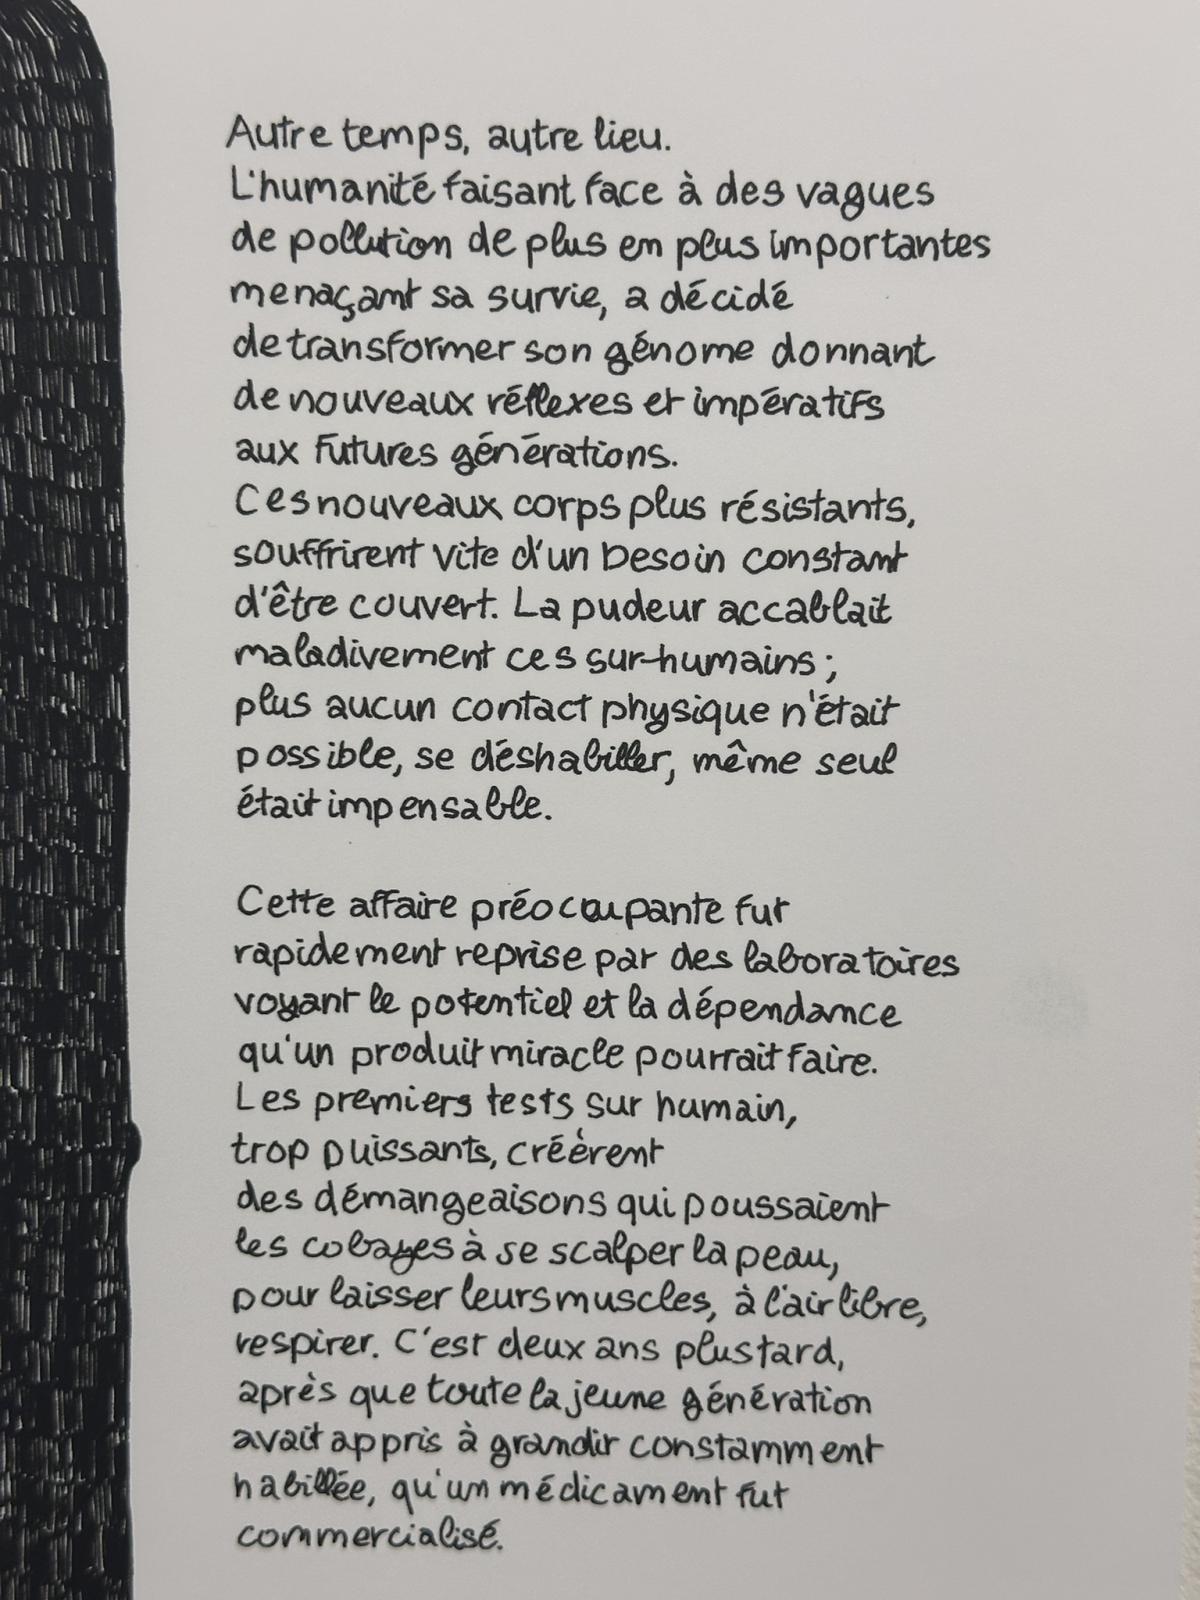 Autre temps, autre lieu.
L'humanité faisant face à des vagues
de pollution de plus en plus importantes
menaçant sa survie, a décidé
de transformer son génome donnant
de nouveaux réflexes et impératifs
aux futures générations.
Ces nouveaux corps plus résistants,
souffrirent vite d'un besoin constant
d'être couvert. La pudeur accablait
maladivement ces sur-humains ;
plus aucun contact physique n'était
possible, se déshabiller, même seul
était impensable.

Cette affaire préocupante fut
rapidement reprise par des laboratoires
voyant le potentiel et la dépendance
qu'un produit miracle pourrait faire.
Les premiers tests sur humain,
trop puissants, créèrent
des démangeaisons qui poussaient
les cobayes à se scalper la peau,
pour laisser leurs muscles, à l'air libre,
respirer. C'est deux ans plus tard,
après que toute la jeune génération
avait appris à grandir constamment
habillée, qu'un médicament fut
commercialisé.